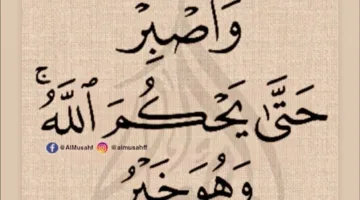 وَٱصۡبِرۡ
حَتَّىٰ يَحۡكُمَ ٱللَّهُۚ
@AlMusahf @almusahff
وَهُوَ خَيۡرُ